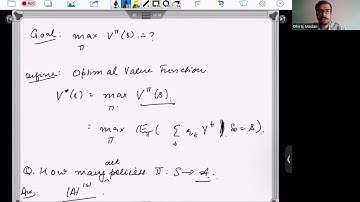 Goal: max V^π(s) = ?
π
Define: Optimal Value Function.
V*(s) = max V^π(s).
π
= max E_π ( Σ r_t γ^t | s_0 = s).
π t
Q. How many det policies π: S → A.
Ans: |A|^|S|
Dhiraj Madan